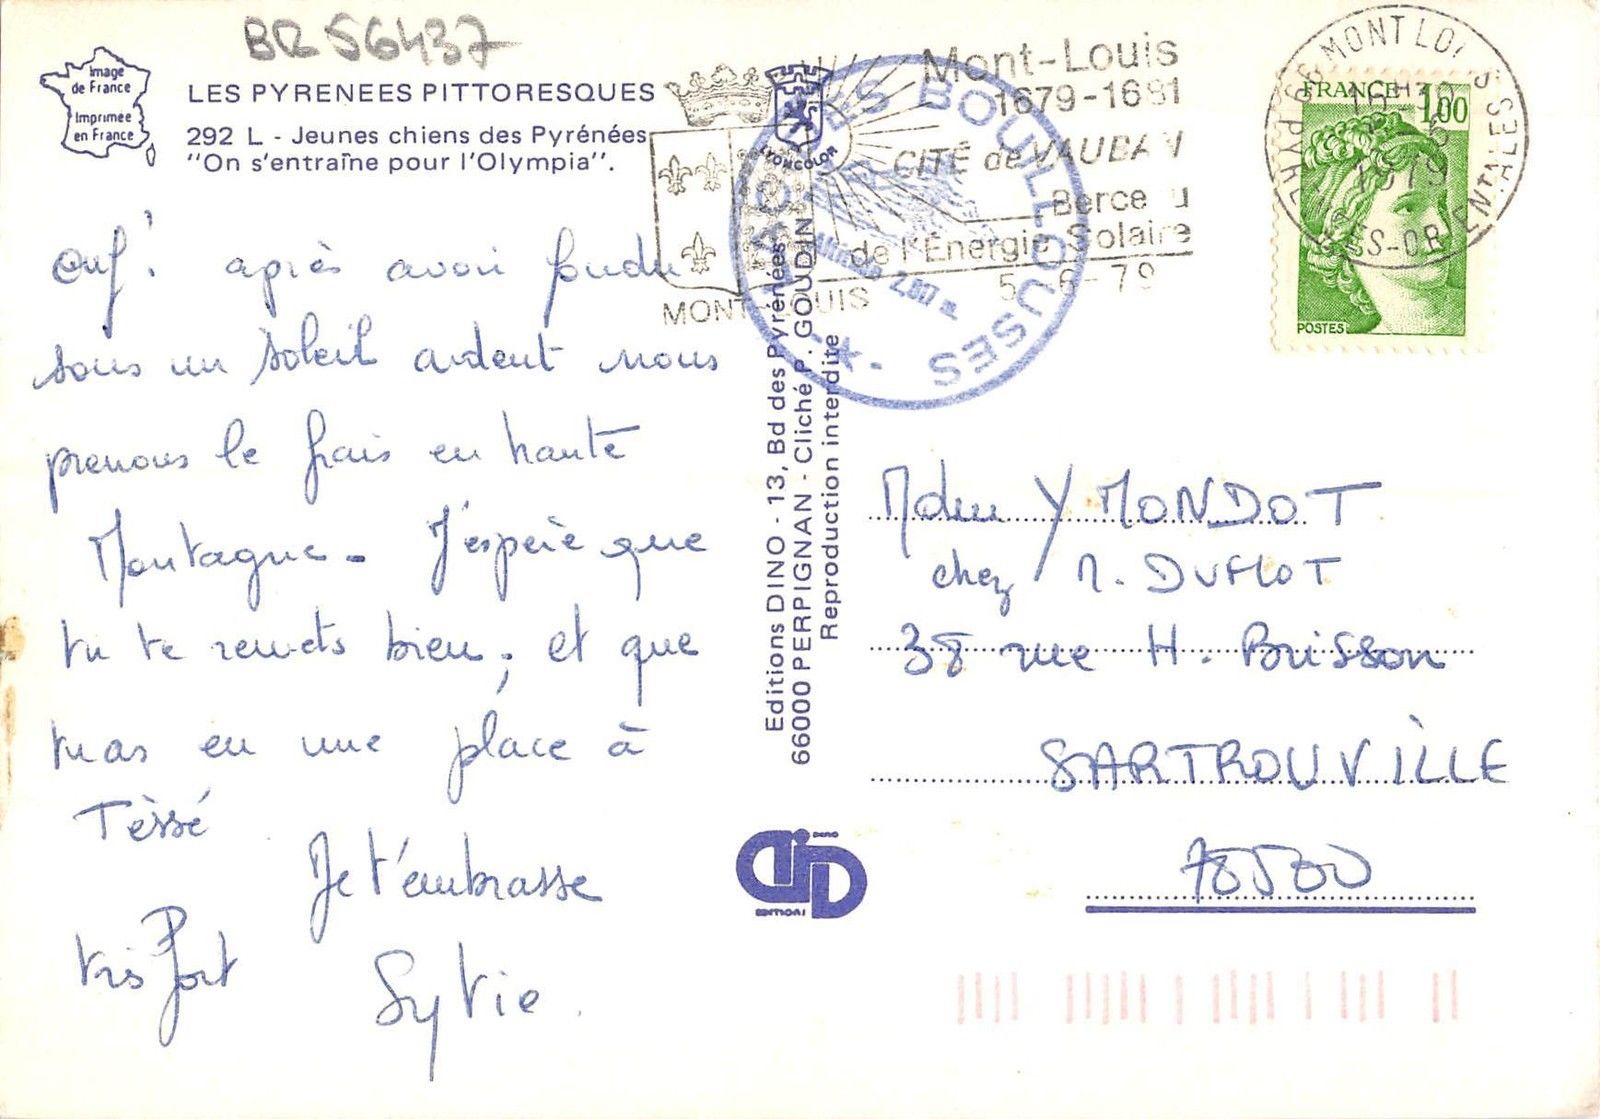 BR 56437
Image
de France
Imprimée
en France
LES PYRENEES PITTORESQUES
292 L - Jeunes chiens des Pyrénées
"On s'entraîne pour l'Olympia".
LYONCOLOR
Mont-Louis
1679-1681
CITÉ de VAUBAN
Berceau
de l'Énergie Solaire
5-6-79
MONT-LOUIS
BOUILLOUSES
Altitude 2.017 m.
66 MONT LOUIS
PYRENEES-ORIENTALES
16H30
5-6
1979
FRANCE
1,00
POSTES
Ouf! après avoir fondu
sous un soleil ardent nous
prenons le frais en haute
Montagne - J'espère que
tu te remets bien, et que
tu as eu une place à
Téssé
Je t'embrasse
très fort
Sylvie.
Editions DINO - 13, Bd des Pyrénées
66000 PERPIGNAN - Cliché P. GOUDIN
Reproduction interdite
DINO
EDITIONS
Mdme Y MONDOT
chez M. DUFLOT
38 rue H. Brisson
SARTROUVILLE
78500